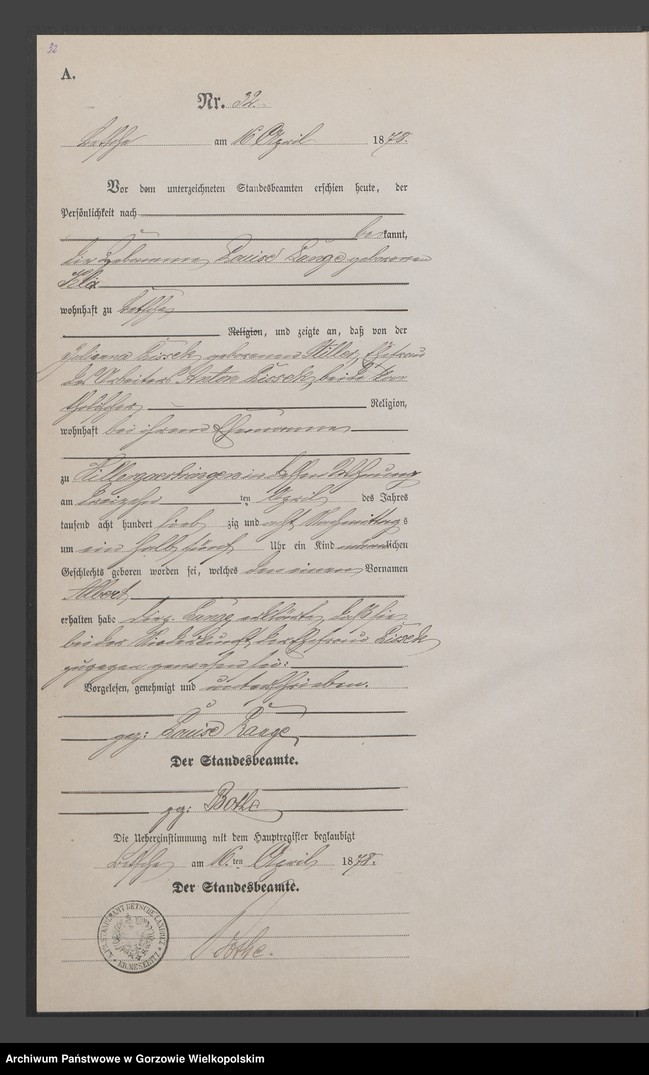 32
A.
Nr. 32.
Betsche am 16 April 1878.
Vor dem unterzeichneten Standesbeamten erschien heute, der
Persönlichkeit nach
bekannt,
die Hebamme Louise Lange geborenen
wohnhaft zu Betsche
Religion, und zeigte an, daß von der
Julianna Kussek geborenen Ehefrau
des Arbeiters Anton Kussek, beide ka
tholischer Religion,
wohnhaft bei ihrem Ehemanne
zu in Wohnung
am dreizehn ten April des Jahres
tausend acht hundert sieb zig und acht Nachmittags
um ein halb fünf Uhr ein Kind männlichen
Geschlechts geboren worden sei, welches den einen Vornamen
Albert
erhalten habe Lange erklärte, daß sie
bei der Niederkunft der Ehefrau Kussek
zugegen gewesen sei.
Vorgelesen, genehmigt und unterschrieben.
gez: Louise Lange
Der Standesbeamte.
gez: Bothe
Die Uebereinstimmung mit dem Hauptregister beglaubigt
Betsche am 16.ten April 1878.
Der Standesbeamte.
Bothe.
Archiwum Państwowe w Gorzowie Wielkopolskim